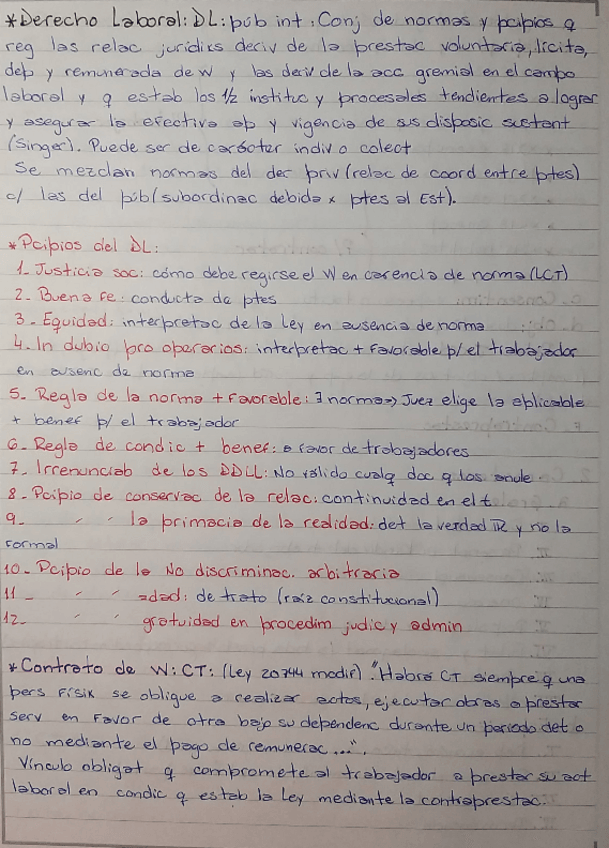 *Derecho Laboral: DL: púb int: Conj de normas y pcipios q
reg las relac jurídiks deriv de la prestac voluntaria, lícita,
dep y remunerada de W y las deriv de la acc gremial en el campo
laboral y q estab los 1/2 instituc y procesales tendientes a lograr
y asegurar la efectiva ap y vigencia de sus disposic sustant
(Singer). Puede ser de carácter indiv o colect
Se mezclan normas del der priv (relac de coord entre ptes)
c/ las del púb (subordinac debida x ptes al Est).
*Pcipios del DL:
1- Justicia soc: cómo debe regirse el W en carencia de norma (LCT)
2. Buena fe: conducta de ptes
3- Equidad: interpretac de la Ley en ausencia de norma
4. In dubio pro operarios: interpretac + favorable p/ el trabajador
en ausenc de norma
5- Regla de la norma + favorable: ∃ norma => Juez elige la aplicable
+ benef p/ el trabajador
6- Regla de condic + benef: a favor de trabajadores
7. Irrenunciab de los DDLL: No válido cualq doc q los anule.
8- Pcipio de conservac de la relac: continuidad en el t
9- " " la primacía de la realidad: det la verdad IR y no la
formal
10- Pcipio de la No discriminac. arbitraria
11- " " =dad: de trato (raíz constitucional)
12- " " gratuidad en procedim judic y admin
*Contrato de W: CT: (Ley 20744 modif) "Habrá CT siempre q una
pers físik se obligue a realizar actos, ejecutar obras o prestar
serv en favor de otra bajo su dependenc durante un período det o
no mediante el pago de remunerac..."
Vínculo obligat q compromete al trabajador a prestar su act
laboral en condic q estab la Ley mediante la contraprestac.